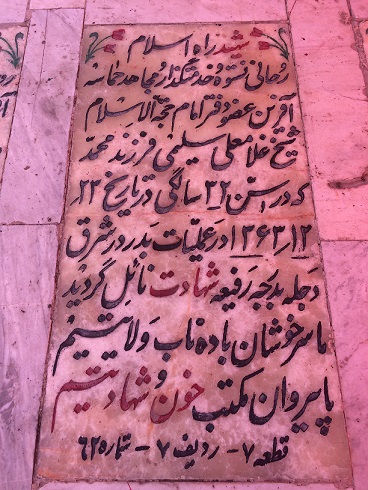 شهید راه اسلام
روحانی نستوه خدمتگذار مجاهد حماسه
آفرین عضو دفتر امام حجة الاسلام
شیخ غلامعلی سلیمی فرزند محمد
که در سن ۳۲ سالگی در تاریخ ۲۳
۱۳۶۳/۱۲ در عملیات بدر در شرق
دجله بدرجه رفیعه شهادت نائل گردید
ما سرخوشان باده ناب ولایتیم
پاپیروان مکتب خون و شهادتیم
قطعه ۷ - ردیف ۷ - شماره ۶۲